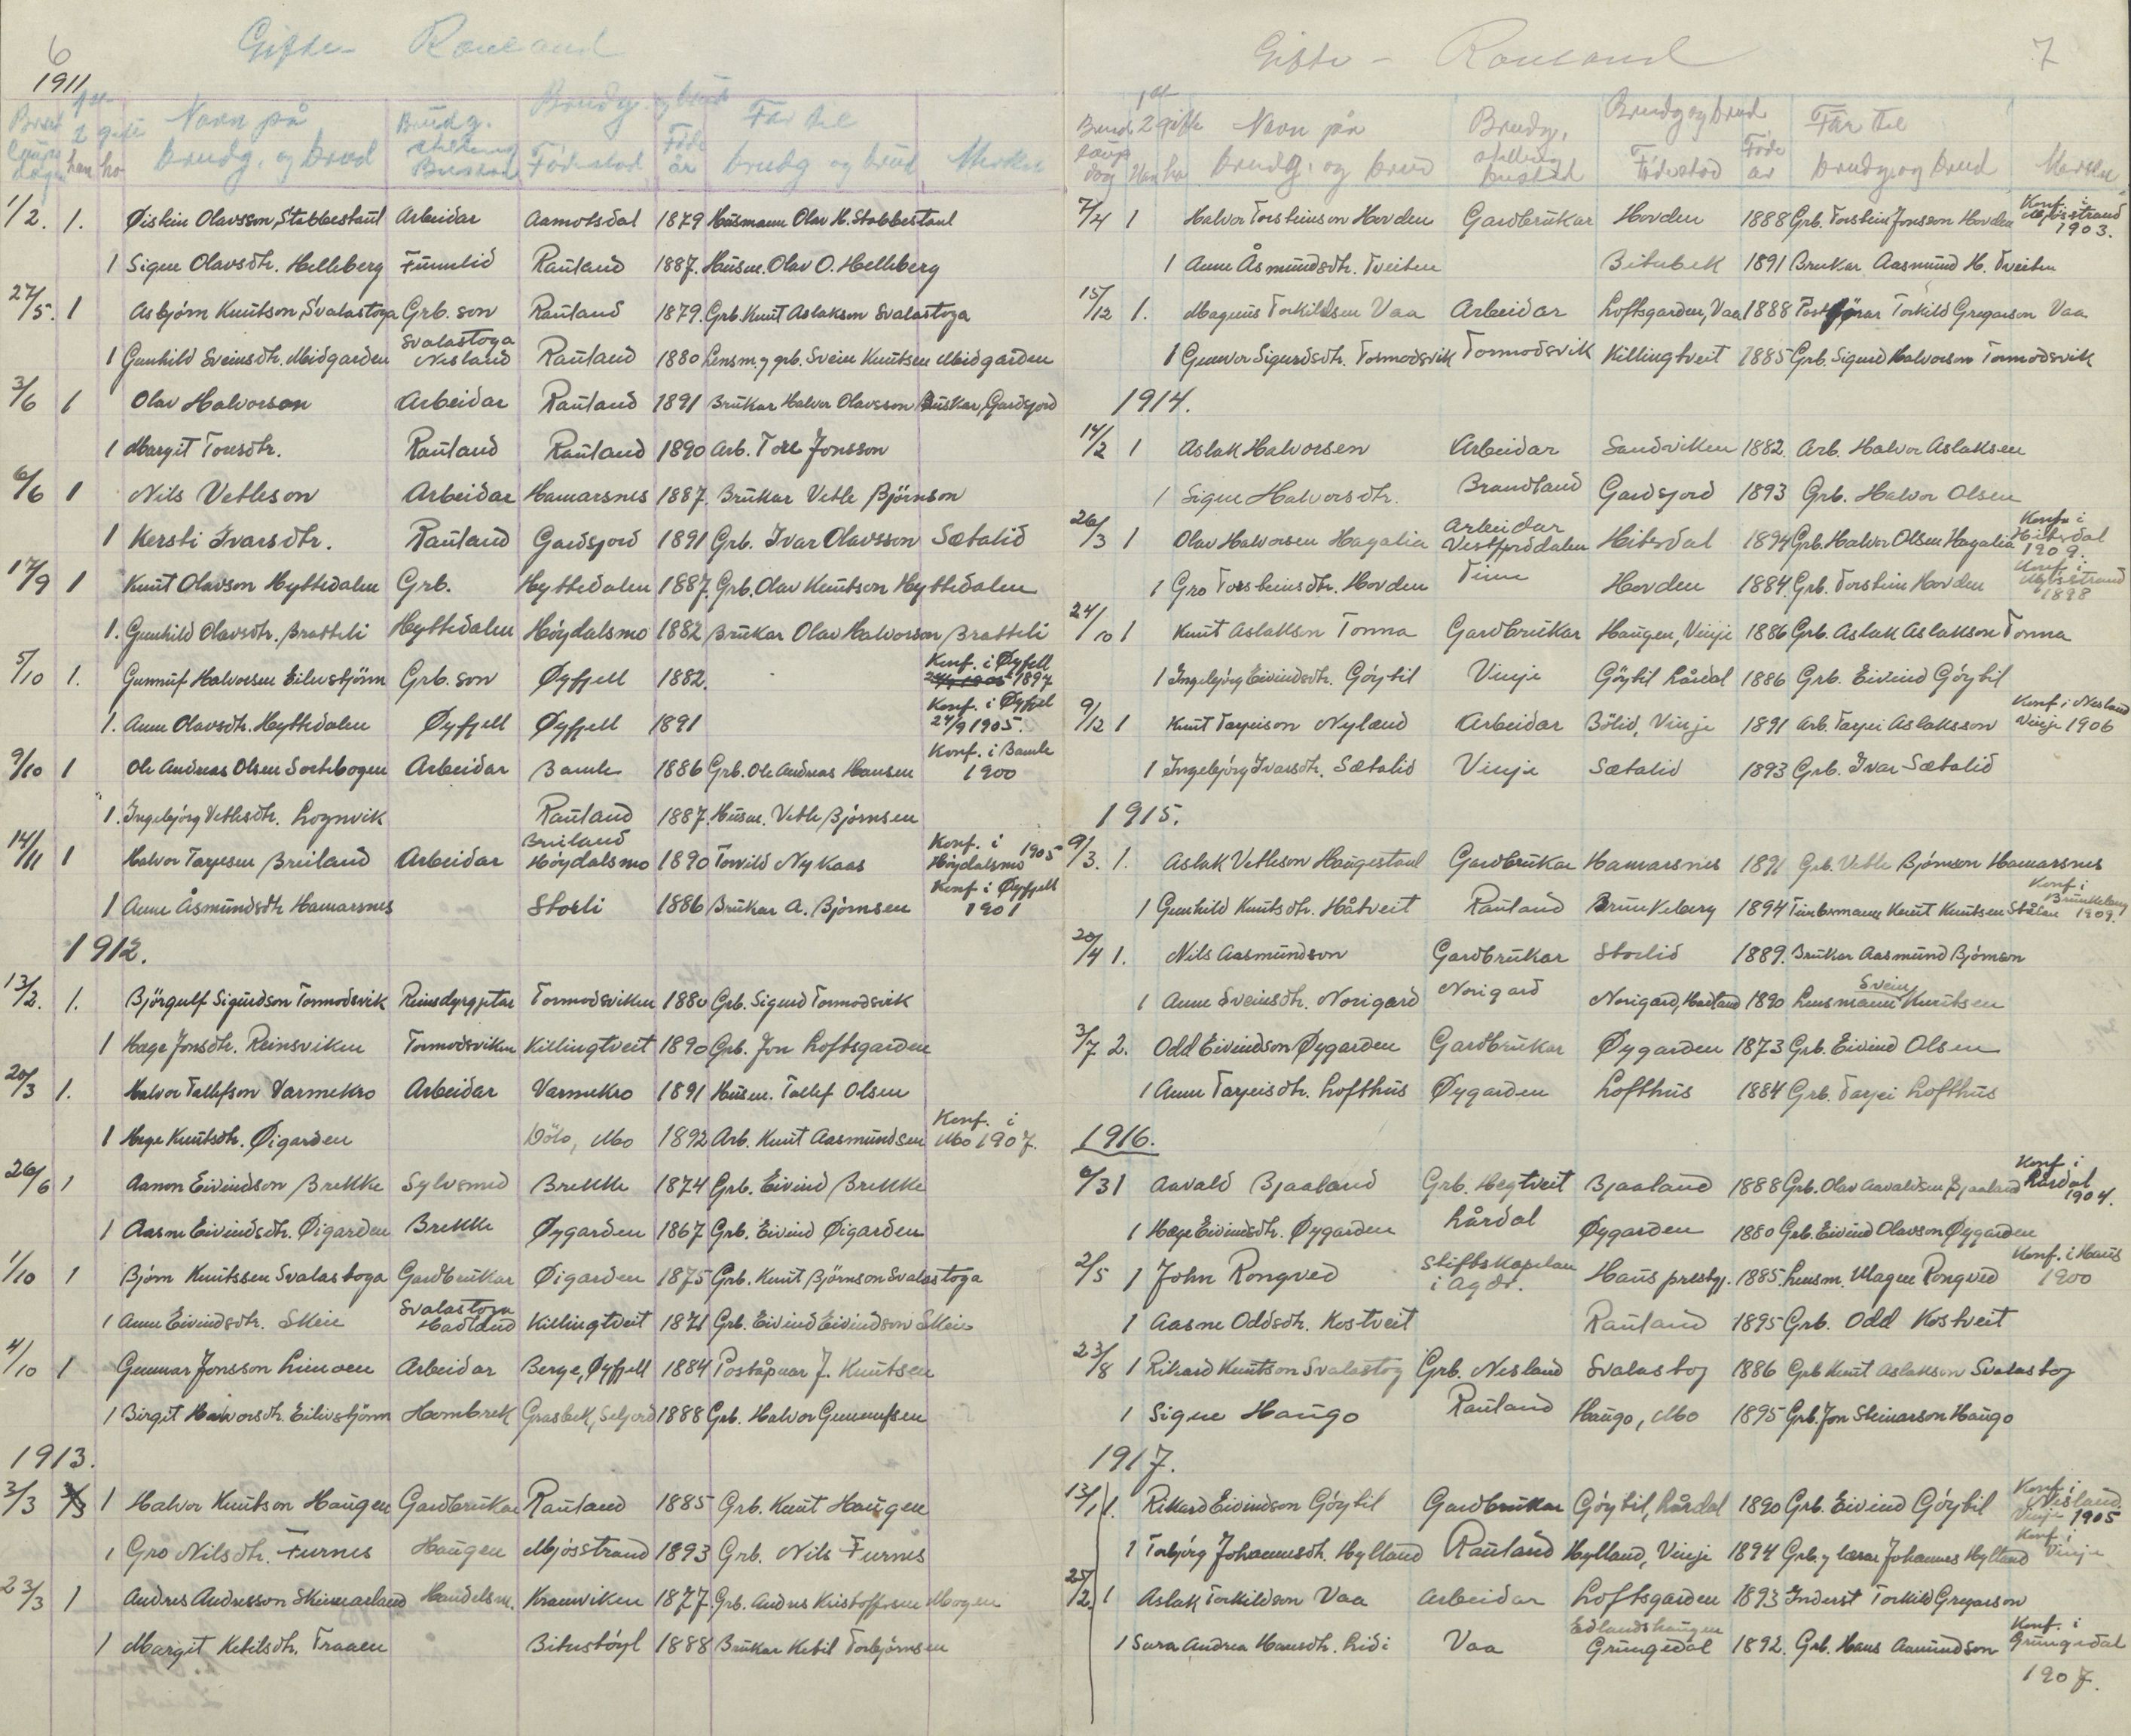 6
Gifte - Rauland
1911
Navn på brudg. og brud
Brudg. og brud
Fødestad
Føde år
Far til brudg og brud
Merkn
1/2. 1. Øistein Olavsson Stabbestaul Arbeidar Aamotsdal 1879 Husmann Olav H. Stabbestaul
1 Signe Olavsdtr. Helleberg Rauland 1887. Husm. Olav O. Helleberg
27/5. 1 Asbjørn Knutson Svalastoga Grb. son Rauland 1879. Grb. Knut Aslakson Svalastoga
1 Gunhild Sveinsdtr. Midgarden Svalastoga Nesland Rauland 1880 Lensm. og grb. Svein Knutsen Midgarden
3/6 1 Olav Halvorson Arbeidar Rauland 1891 Brukar Halvor Olavsson Buskar, Gardsjord
1 Margit Toresdtr. Rauland Rauland 1890 Arb. Tore Jonsson
6/6 1 Nils Vetleson Arbeidar Hamarsnes 1887. Brukar Vetle Bjørnson
1 Kersti Ivarsdtr. Rauland Gardsjord 1891 Grb. Ivar Olavsson Sætalid
17/9 1 Knut Olavson Hyttedalen Grb. Hyttedalen 1887. Grb. Olav Knutson Hyttedalen
1. Gunhild Olavsdtr. Bratteli Hyttedalen Høydalsmo 1882 Brukar Olav Halvorson Bratteli
5/10 1. Gunnuf Halvorsen Eilivstjønn Grb. son Øyfjell 1882. Konf. i Øyfell 1897
1. Anne Olavsdtr. Hyttedalen Øyfjell Øyfjell 1891 Konf. i Øyfjel 24/9 1905.
9/10 1 Ole Andreas Olsen Sortebogen Arbeidar Bamle 1886 Grb. Ole Andreas Hansen Konf. i Bamle 1900
1. Ingebjørg Vetlesdtr. Lognvik Rauland 1887. Husm. Vetle Bjørnsen
14/11 1 Halvor Tarjesen Breiland Arbeidar Breiland Høydalsmo 1890 Torvild Nykaas Konf. i Høydalsmo 1905
1 Anne Åsmundsdtr Hamarsnes Storli 1886 Brukar A. Bjørnsen Konf i Øyfjell 1901
1912.
13/2. 1. Bjørgulf Sigurdson Tormodsvik Reinsdyrgjetar Tormodsviken 1880 Grb. Sigurd Tormodsvik
1 Hæge Jonsdtr. Reinsviken Tormodsviken Killingtveit 1890 Grb. Jon Loftsgarden
20/3 1. Halvor Tallefson Varmekro Arbeidar Varmekro 1891 Husm. Tallef Olsen
1 Hæge Knutsdtr. Øigarden Dölo, Mo 1892 Arb. Knut Aasmundsen Konf. i Mo 1907.
26/6 1 Aanon Eivindson Brekke Sylvsmed Brekke 1874 Grb. Eivind Brekke
1 Aasne Eivindsdtr. Øigarden Brekke Øygarden 1867 Grb. Eivind Øigarden
1/10 1 Bjørn Knutssen Svalastoga Gardbrukar Øigarden 1875 Grb. Knut Björnson Svalastoga
1 Anne Eivindsdtr. Skeie Svalastoga Hadland Killingtveit 1871 Grb. Eivind Eivindson Skeie
4/10 1 Gunnar Jonsson Limoen Arbeidar Berge, Øyfjell 1884 Poståpnar J. Knutsen
1 Birgit Halvorsdtr. Eilivstjønn Hambrek Grasbek, Seljord 1888 Grb. Halvor Gunnufsen
1913.
3/3 1 Halvor Knutson Haugen Gardbrukar Rauland 1885 Grb. Knut Haugen
1 Gro Nilsdtr. Furnes Haugen Mjösstrand 1893 Grb. Nils Furnes
23/3 1 Andres Andresson Skinnarland Handelsm. Kromviken 1877. Grb. Andres Kristoffersen Mogen
1 Margit Ketilsdtr. Traaen Bitustøyl 1888 Brukar Ketil Torbjørnsen
Gifte - Rauland
7
2 gifte
Navn på brudg. og brud
Brudg. stelling bustad
Brudg og brud
Fødestad
Føde år
Far til brudg. og brud
Merkn
7/4 1 Halvor Torsteinson Hovden Gardbrukar Hovden 1888 Grb. Torstein Jonsson Hovden Konf. i Mjösstrand 1903.
1 Anne Åsmundsdtr. Tveiten Bitubek 1891 Brukar Aasmund H. Tveiten
15/12 1. Magnus Torkildsen Vaa Arbeidar Loftsgarden, Vaa 1888 Torkild Gregarson Vaa
1 Gunvor Sigurdsdtr. Tormodsvik Tormodsvik Killingtveit 1885 Grb. Sigurd Halvorson Tormodsvik
1914.
14/2 1 Aslak Halvorsen Arbeidar Sandviken 1882. Arb. Halvor Aslaksen
1 Signe Halvorsdtr. Brandland Gardsjord 1893 Grb. Halvor Olsen
26/3 1 Olav Halvorsen Hagalia Arbeidar Vestfjorddalen Hitterdal 1894 Grb. Halvor Olsen Hagalia Konf. i Hitterdal 1909.
1 Gro Torsteinsdtr. Hovden Tinn Hovden 1884. Grb. Torstein Hovden Konf. i Mjösstrand 1898
24/10 1 Knut Aslaksen Tonna Gardbrukar Haugen, Vinje 1886 Grb. Aslak Aslakson Tonna
1 Ingebjørg Eivindsdtr. Göytil Vinje Göytil Lårdal 1886 Grb. Eivind Göytil
9/12 1 Knut Tarjeison Nyland Arbeidar Bölid, Vinje 1891 Arb. Tarjei Aslaksson Konf. i Nesland Vinje 1906
1 Ingebjörg Ivarsdtr. Sætalid Vinje Sætalid 1893 Grb. Ivar Sætalid
1915.
9/3. 1. Aslak Vetleson Haugestaul Gardbrukar Hamarsnes 1891 Grb. Vetle Bjørnson Hamarsnes
1 Gunhild Knutsdtr. Håtveit Rauland Brunkeberg 1894 Timbermann Knut Knutsen Stålen Konf. i Brunkeberg 1909.
20/4 1. Nils Aasmundson Gardbrukar Storlid 1889. Brukar Aasmund Bjørnson
1 Anne Sveinsdtr. Norigard Norigard Norigard, Hadland 1890 Lensmann Svein Knutsen
3/7 2. Odd Eivindson Øygarden Gardbrukar Øygarden 1873 Grb. Eivind Olsen
1 Anne Tarjeisdtr. Lofthus Øygarden Lofthus 1884 Grb. Tarjei Lofthus
1916.
6/3 1 Aavald Bjaaland Grb. Hegtveit Bjaaland 1888 Grb. Olav Aavaldsen Bjaaland Konf. i Lårdal 1904.
1 Hæge Eivindsdtr. Øygarden Lårdal Øygarden 1880 Grb. Eivind Olavson Øygarden
2/5 1 John Rongved Stiftskapelan i Agdr. Haus prestgj. 1885 Lensm. Magne Rongved Konf. i Haus 1900
1 Aasne Oddsdtr. Kostveit Rauland 1895 Grb. Odd Kostveit
23/8 1 Rikard Knutson Svalastog Grb. Nesland Svalastog 1886 Grb Knut Aslakson Svalastog
1 Signe Haugo Rauland Haugo, Mo 1895 Grb. Jon Steinarson Haugo
1917.
13/1 1. Rikard Eivindson Göytil Gardbrukar Göytil, Lårdal 1890 Grb. Eivind Göytil Konf. i Nesland. Vinje 1905
1 Torbjörg Johannesdtr. Hylland Rauland Hylland, Vinje 1894 Grb. og lærar Johannes Hylland Konf. i Vinje
25/2. 1 Aslak Torkildson Vaa Arbeidar Loftsgarden 1893 Inderst Torkild Gregarson
1 Sara Andrea Hansdtr. Lidi Vaa Edlandshaugen Grungedal 1892. Grb. Hans Aamundson Konf. i Grungedal 1907.